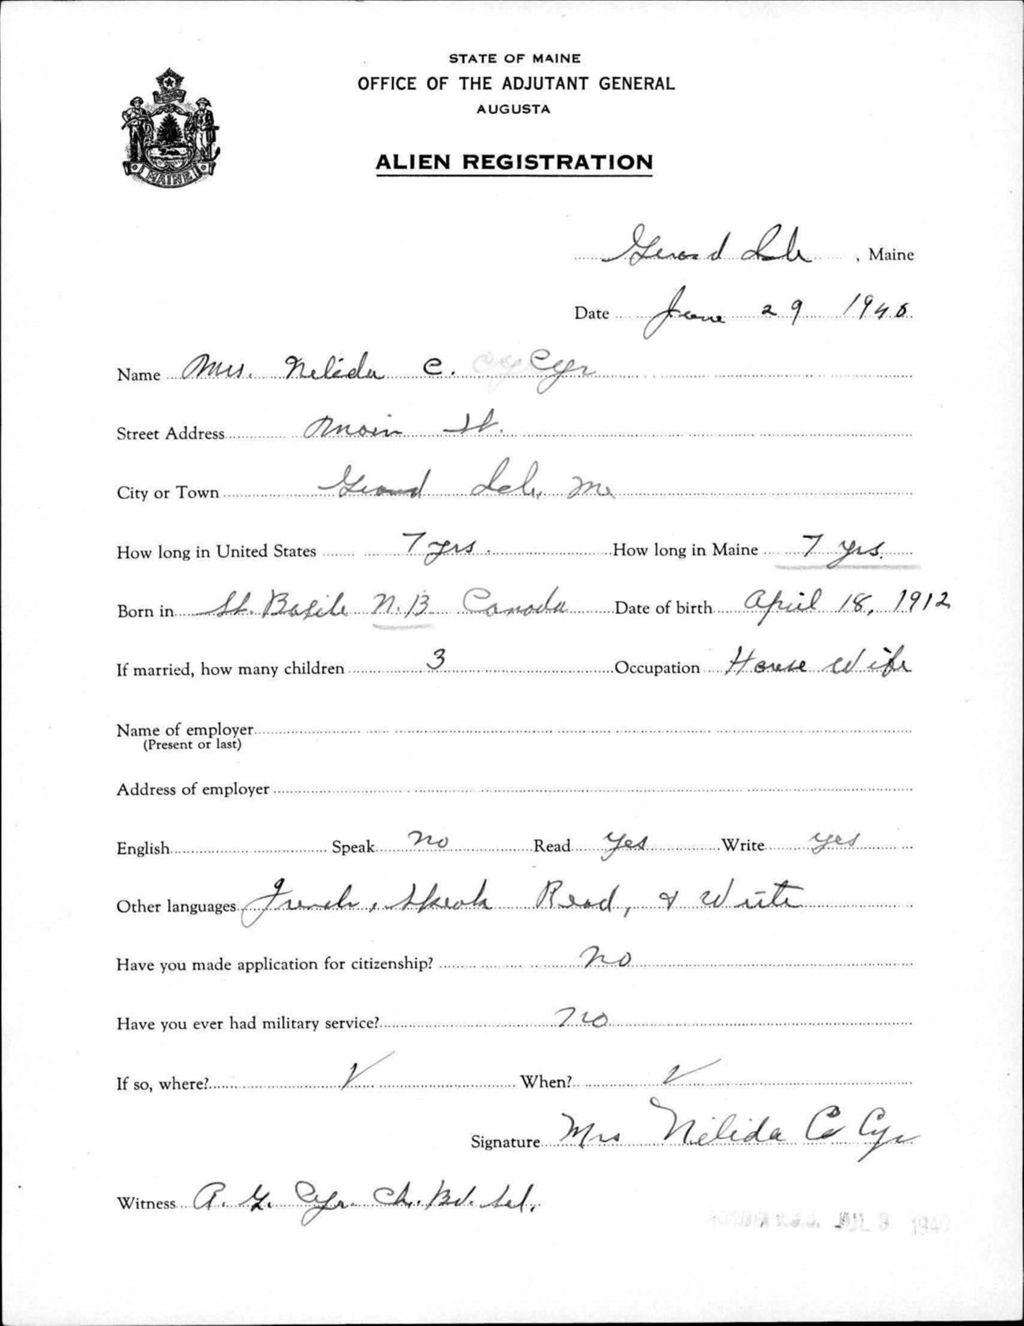 STATE OF MAINE
OFFICE OF THE ADJUTANT GENERAL
AUGUSTA
ALIEN REGISTRATION
MAINE
Grand Isle, Maine
Date June 29 1940
Name Mrs. Nelida C. Cyr
Street Address Main St.
City or Town Grand Isle, Me
How long in United States 7 yrs. How long in Maine 7 yrs.
Born in St. Basile N.B Canada Date of birth April 18, 1912
If married, how many children 3 Occupation House Wife
Name of employer
(Present or last)
Address of employer
English Speak No Read Yes Write yes
Other languages French, Speak Read, & Write
Have you made application for citizenship? No
Have you ever had military service? No
If so, where? When?
Signature Mrs Nélida C Cyr
Witness A. G. Cyr. Ch. Bd. Sel.
JUL 9 1940